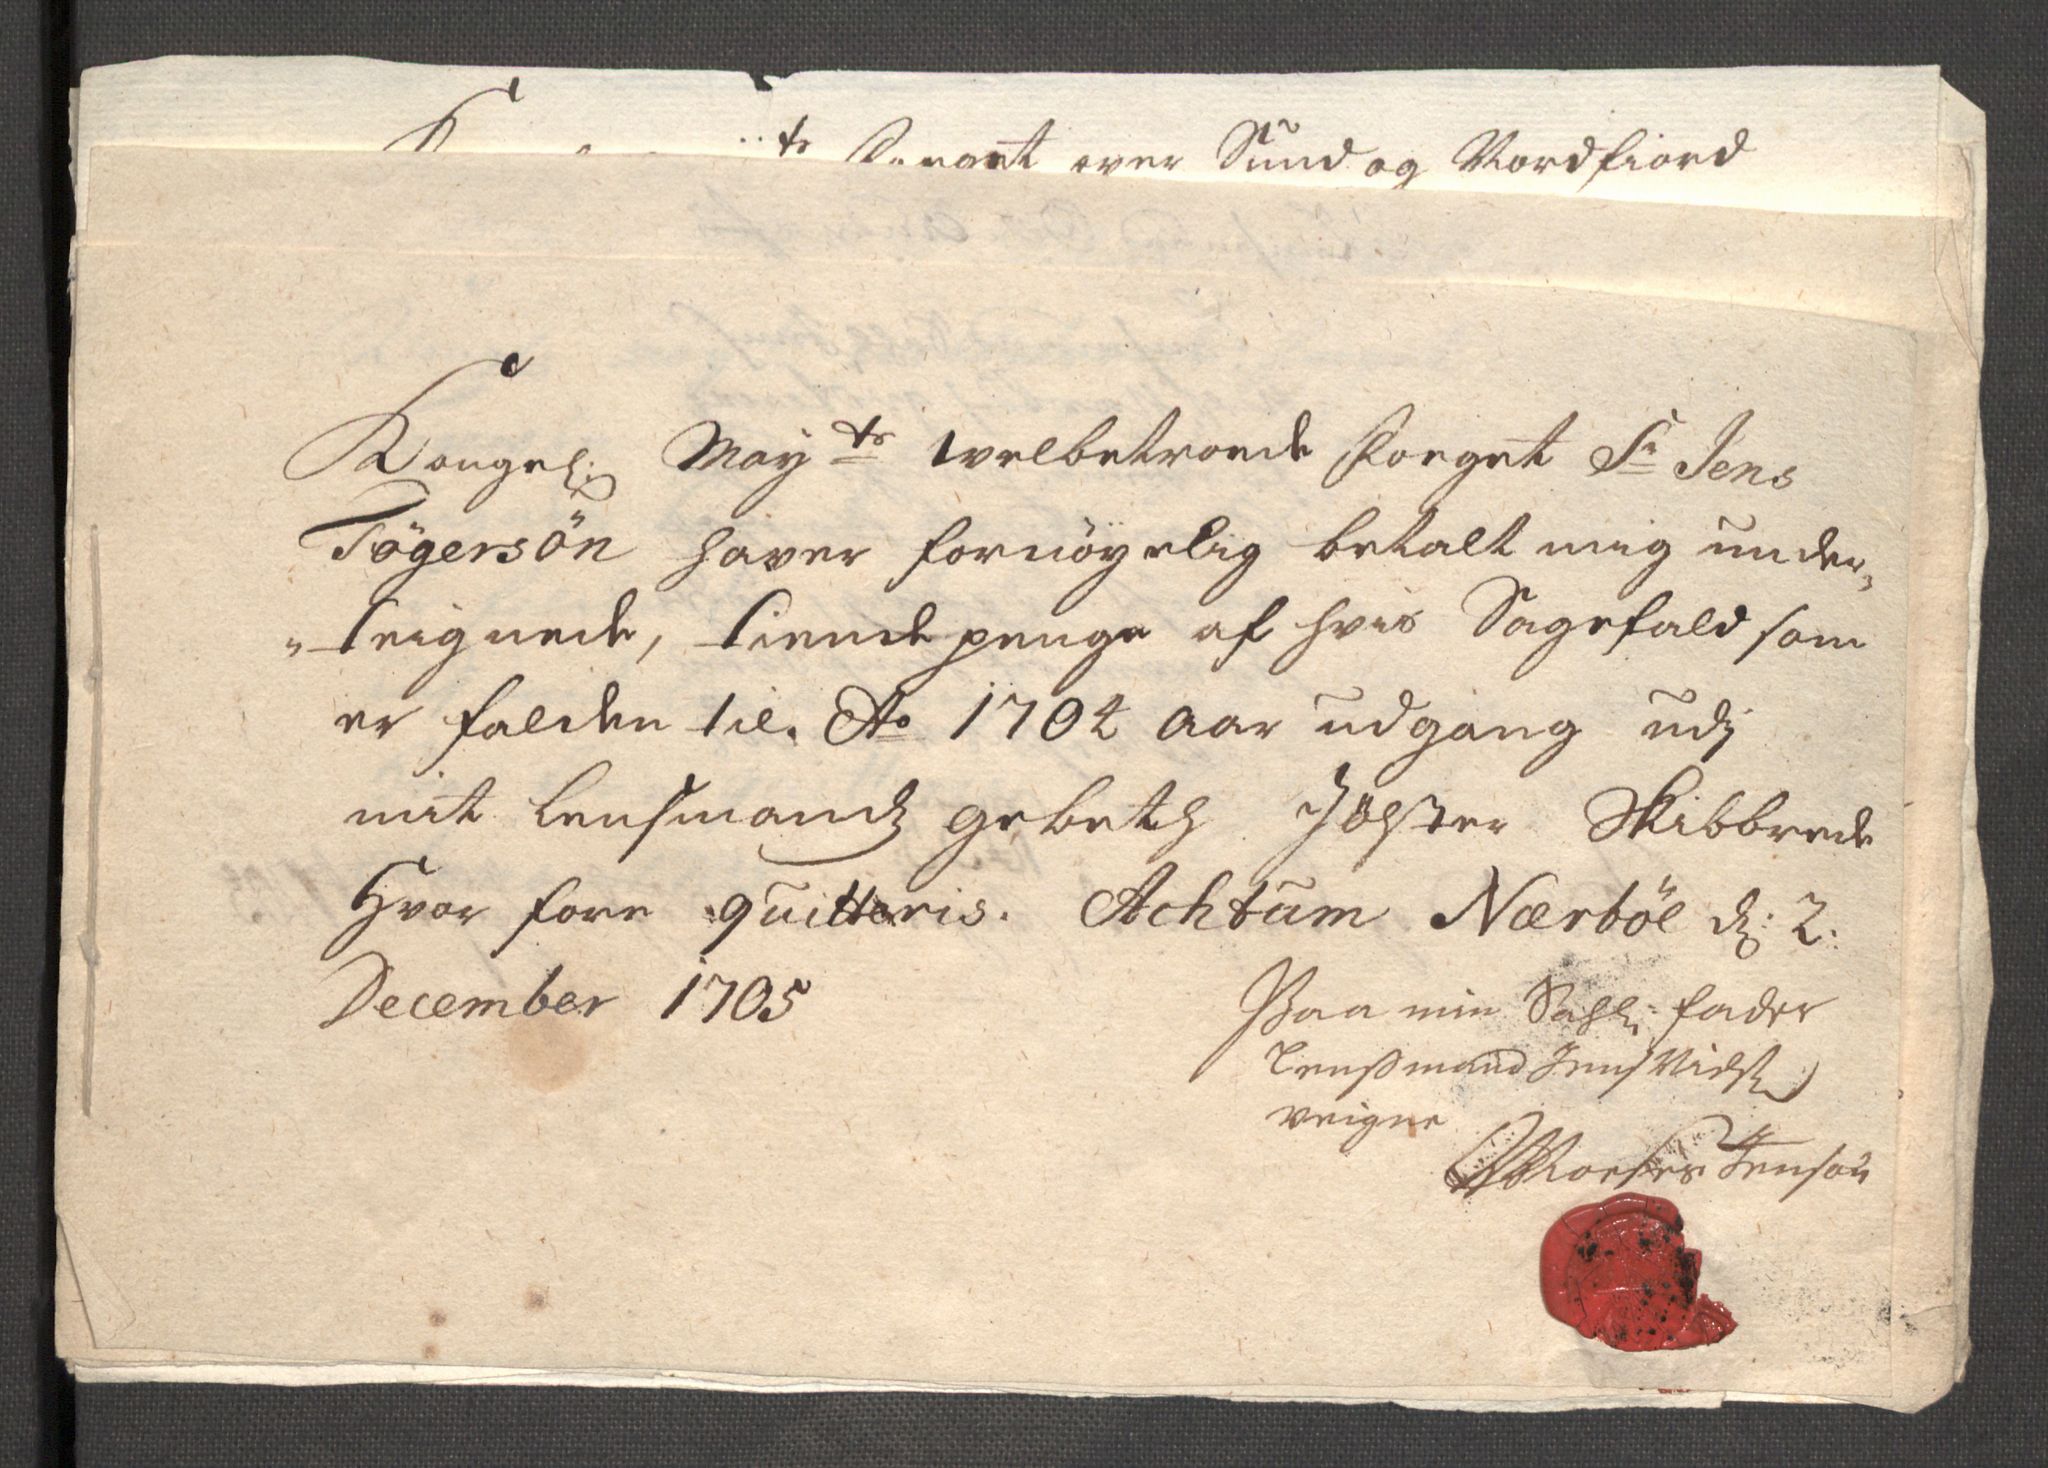 Foeget over Sund og Nordfiord
Kongel: Maytz welbetroede Foeget Sr Jens
Tögersön hafver fornöyelig betalt mig under„
„teignede, tiende penge af hvis Sagefald som
er falden til Ao 1704 aar udgang udj
mit Lensmandz gebeth Jölster Skibbrede
Hvor fore quitteris. Achtum Nærböe d: 2.
December 1705
Paa min Sahl: fader
Lenßmand Jens Nielsens
veigne
Moeses Jensön